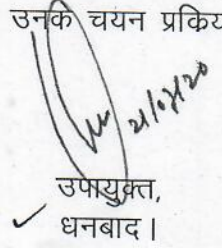 उनके चयन प्रकिय
21/07/20
उपायुक्त,
धनबाद।